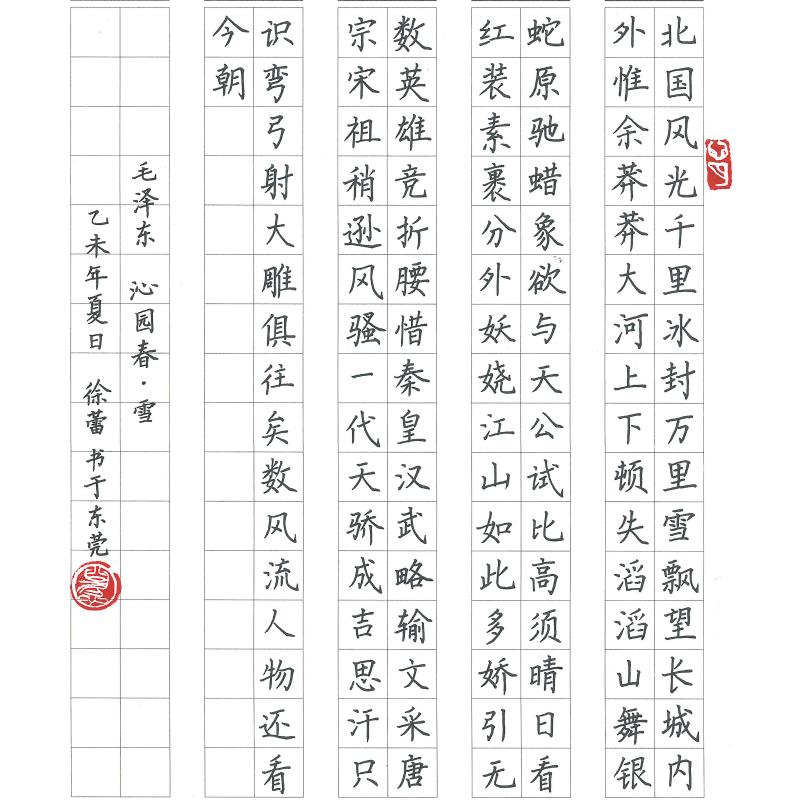 北国风光千里冰封万里雪飘望长城内
外惟余莽莽大河上下顿失滔滔山舞银
蛇原驰蜡象欲与天公试比高须晴日看
红装素裹分外妖娆江山如此多娇引无
数英雄竞折腰惜秦皇汉武略输文采唐
宗宋祖稍逊风骚一代天骄成吉思汗只
识弯弓射大雕俱往矣数风流人物还看
今朝
毛泽东 沁园春·雪
乙未年夏日 徐蕾书于东莞